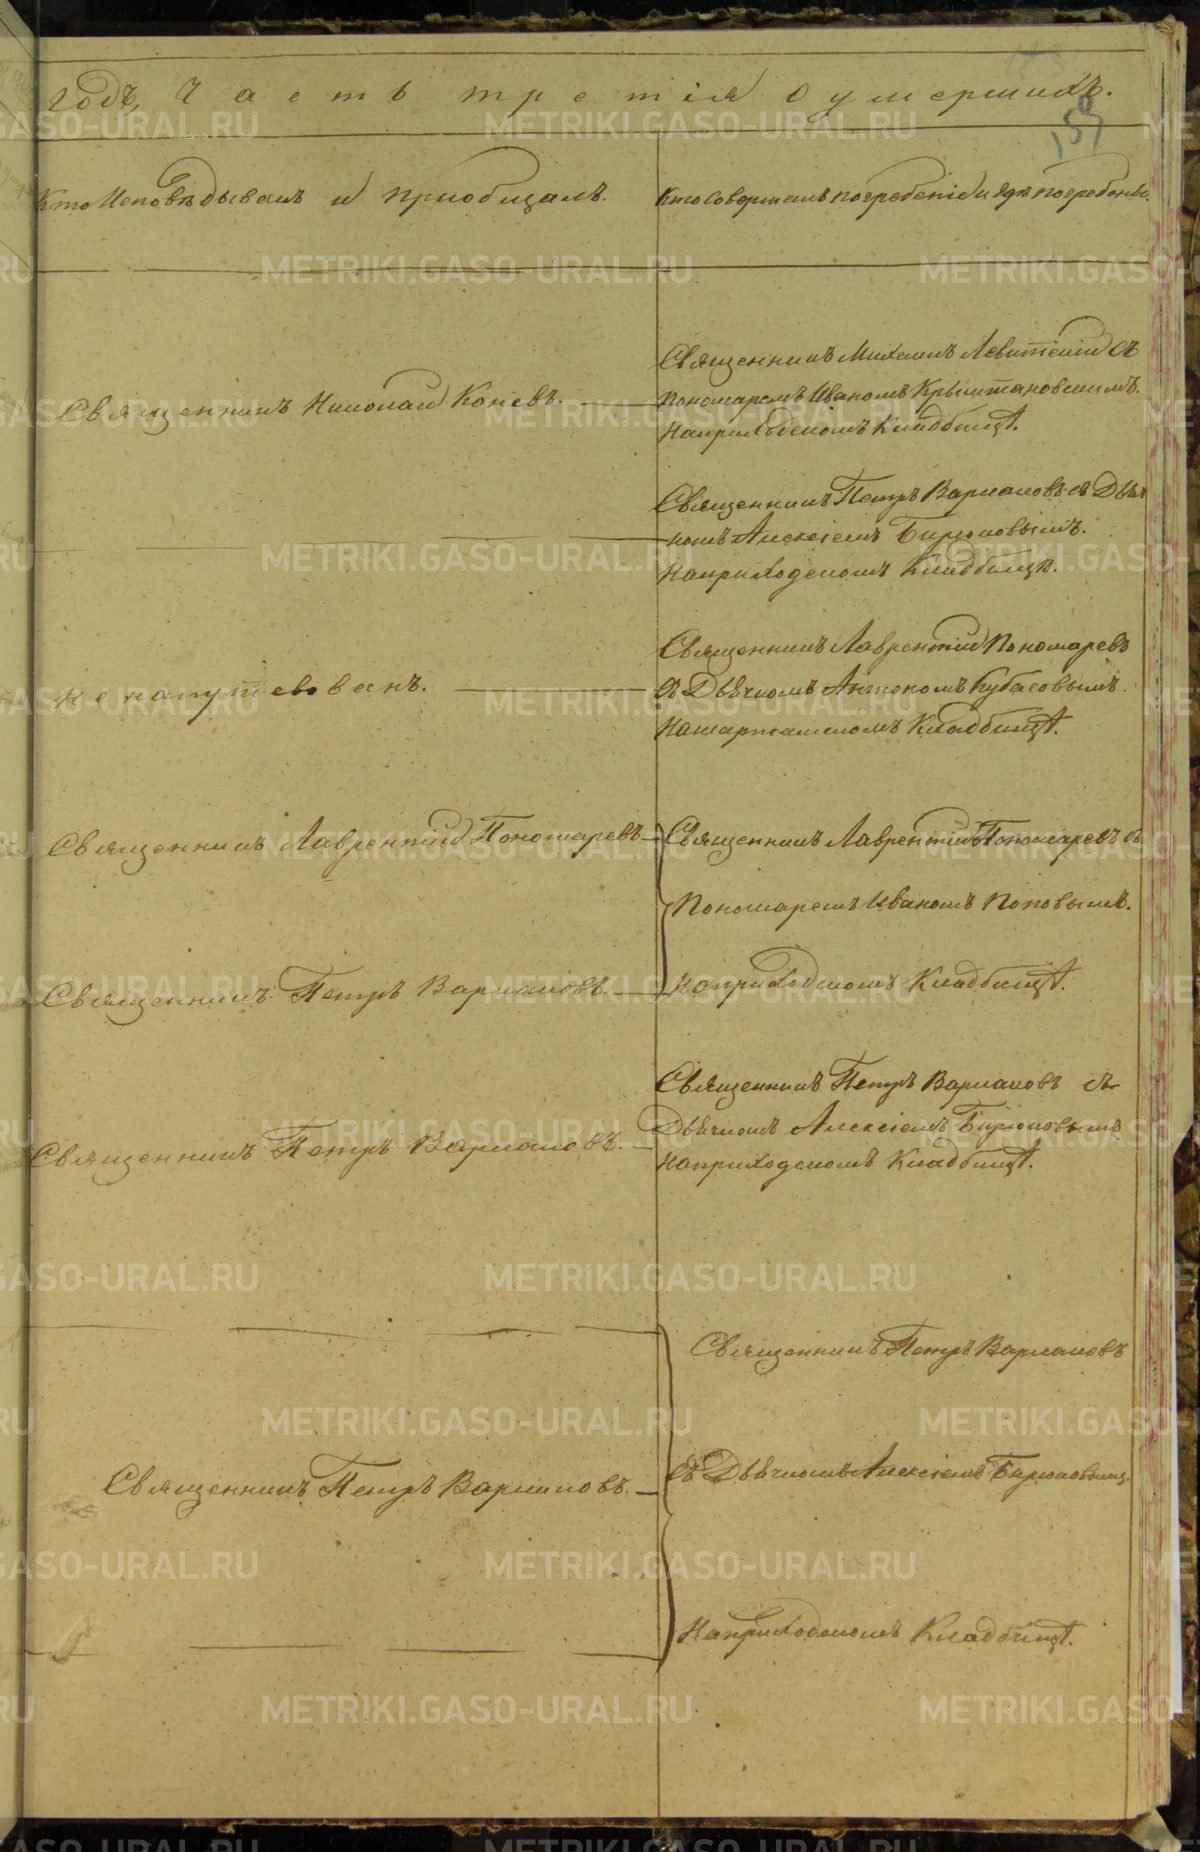 годъ, Часть третія о умершихъ.
159
Кто Исповѣдывалъ и пріобщалъ.
Кто Совершалъ погребеніе и гдѣ погребены.
Священникъ Николай Коневъ.
Священникъ Михаилъ Левитскій съ
пономаремъ Иваномъ Крыжановскимъ.
На приходскомъ Кладбищѣ.
Священникъ Петръ Варлаковъ съ Дья
комъ Алексіемъ Бирюковымъ.
На приходскомъ Кладбищѣ.
Не напутствованъ.
Священникъ Лаврентій Пономаревъ
съ Дьячкомъ Антономъ Кубасовымъ.
На шарташскомъ Кладбищѣ.
Священникъ Лаврентій Пономаревъ
Священникъ Лаврентій Пономаревъ съ
Пономаремъ Иваномъ Поповымъ.
Священникъ Петръ Варлаковъ.
На приходскомъ Кладбищѣ.
Священникъ Петръ Варлаковъ.
Священникъ Петръ Варлаковъ съ
Дьячкомъ Алексіемъ Бирюковымъ
на приходскомъ Кладбищѣ.
Священникъ Петръ Варлаковъ
Священникъ Петръ Варлаковъ.
съ Дьячкомъ Алексіемъ Бирюковымъ.
На приходскомъ Кладбищѣ.
METRIKI.GASO-URAL.RU